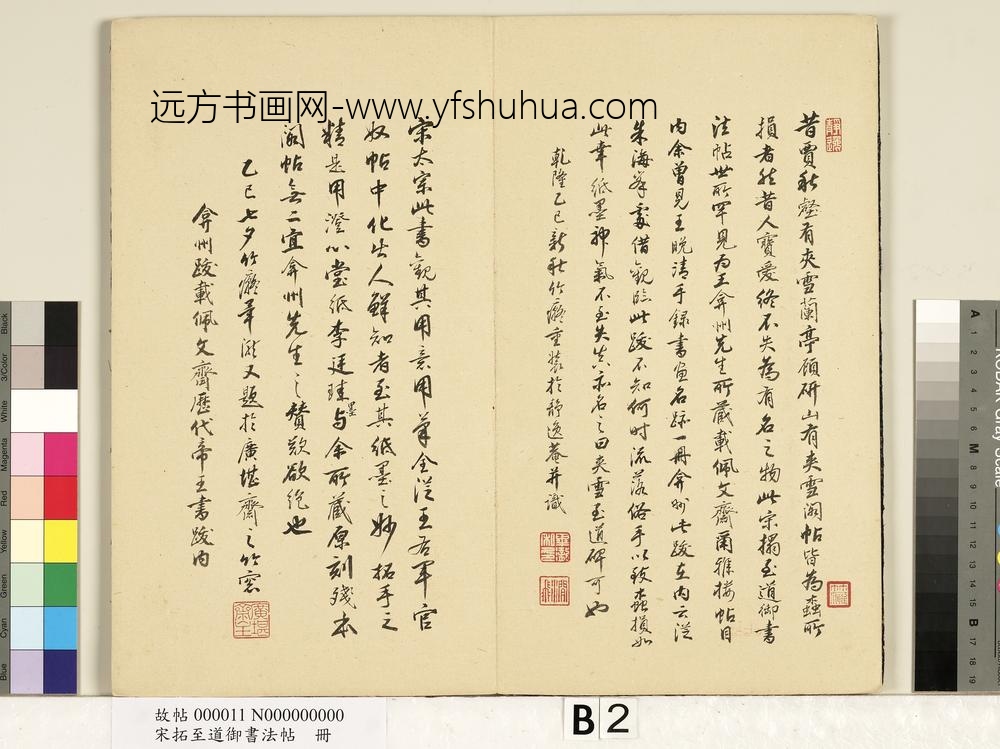 远方书画网-www.yfshuhua.com
昔賈秋壑有夾雪蘭亭顧研山有夾雪閣帖皆為蟲所
損者然昔人寶愛終不失為有名之物此宋搨至道御書
法帖世所罕見為王弇州先生所藏載佩文齋爾雅樓帖目
內余曾見王晩清手錄書畫名跡一冊弇州此跋在內云從
朱海峯處借觀臨此跋不知何時流落俗手以致蟲損如
此幸紙墨神氣不至失真亦名之曰夾雪至道碑可也
乾隆乙巳新秋竹癡重裝於靜逸菴并識
宋太宗此書觀其用意用筆全從王右軍官
奴帖中化出人鮮知者至其紙墨之妙拓手之
精是用澄心堂紙李廷珪墨與余所藏原刻殘本
閣帖無二宜弇州先生之贊歎欲絕也
乙巳七夕竹癡羣瀧又題於廣堪齋之竹窓
弇州跋載佩文齋歷代帝王書跋內
故帖 000011 N000000000
宋拓至道御書法帖 冊
B 2
Black
3/Color
White
Magenta
Red
Yellow
Green
Cyan
Blue
A 1 2 3 4 5 6 M 8 9 10 11 12 13 14 15 B 17 18 19